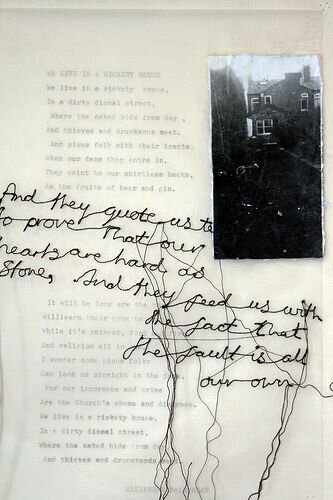 WE LIVE IN A RICKETY HOUSE
We live in a rickety house,
In a dirty dismal street,
Where the naked hide from day,
And thieves and drunkards meet.
And pious folk with their tracts,
When our dens they entre in,
They point to our shirtless backs,
As the fruits of beer and gin.
And they quote us te
to prove That our
hearts are hard as
Stone, And they feed us with
the fact that
the fault is all
our own.
It will be long ere the
While it's raiment, food
And religion all
I wonder some pious folks
Can look us straight in the
For our ignorance and crime
Are the Church's shame and
We live in a rickety house,
In a dirty dismal street,
Where the naked hide from day
And thieves and drunckerds meet.